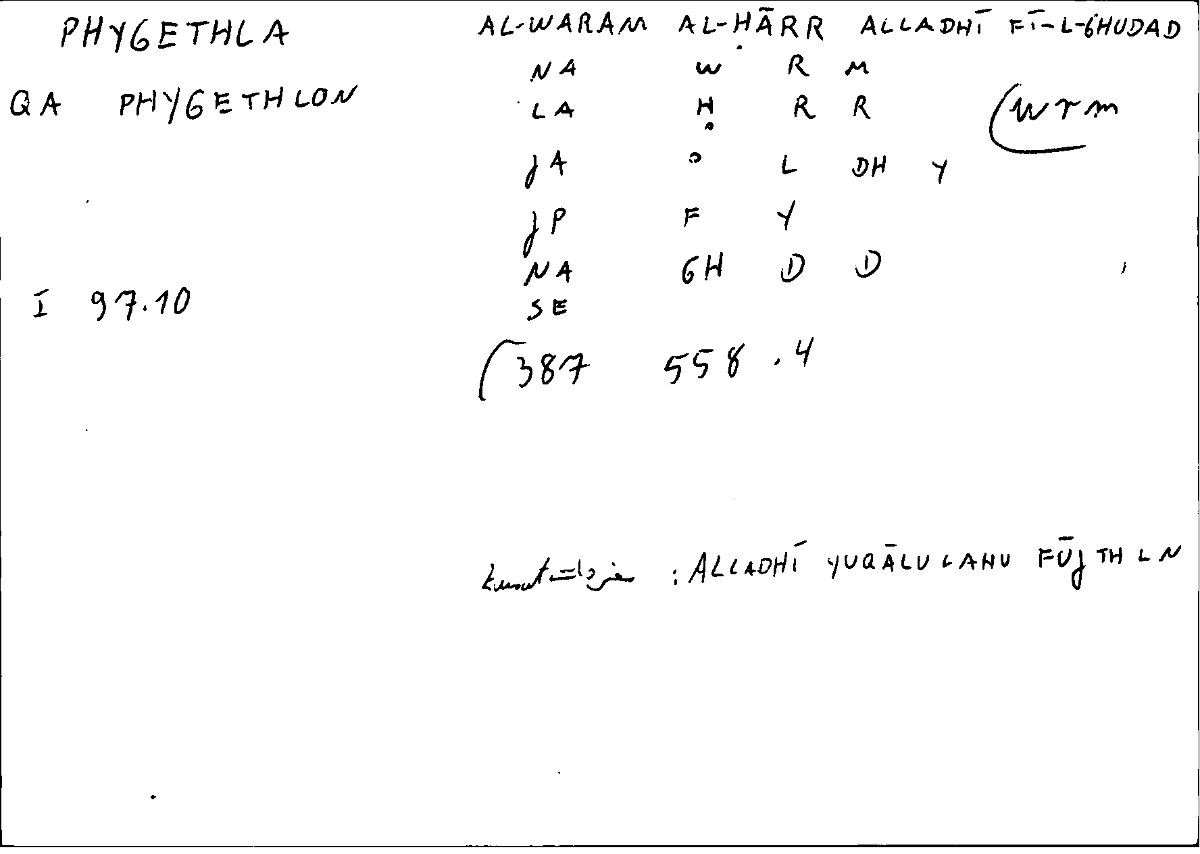 PHYGETHLA AL-WARAM AL-ḤĀRR ALLADHĪ FĪ-L-GHUDAD
NA W R M
QA PHYGETHLON LA Ḥ R R (wrm
JA ᵓ L DH Y
JP F Y
NA GH D D
I 97.10 SE
(387 558.4
: ALLADHĪ YUQĀLU LAHU FŪJTHLN